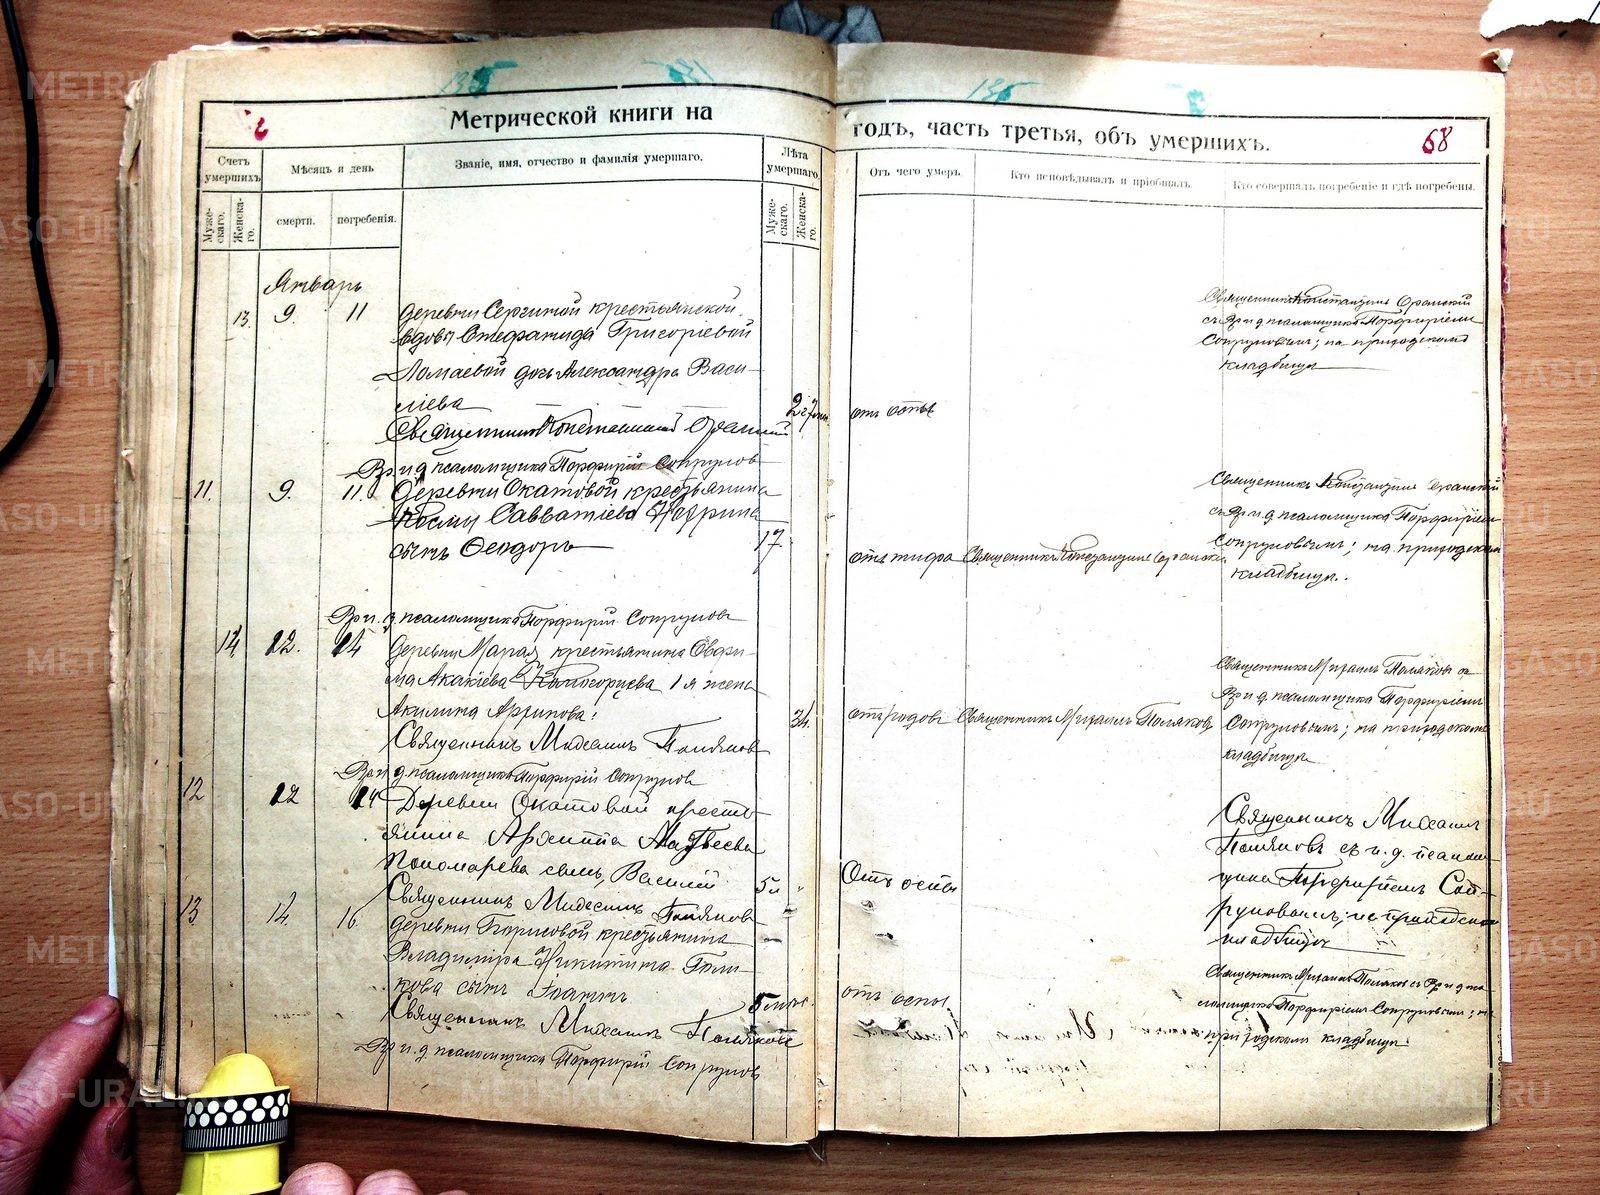 135
135
Метрической книги на
годъ, часть третья, объ умершихъ.
68
Счетъ умершихъ
Мужескаго.
Женскаго.
Мѣсяцъ и день
смерти.
погребенія.
Званіе, имя, отчество и фамилія умершаго.
Лѣта умершаго
Мужескаго.
Женскаго.
Отъ чего умеръ.
Кто исповѣдывалъ и пріобщалъ.
Кто совершалъ погребеніе и гдѣ погребены.
Январь
13. 9. 11
деревни крестьянской
вдовы Григоріевой
дочь Александра Васи-
ліева
отъ оспы
Священникъ Константинъ
съ Вр. и. д. псаломщика Порфиріемъ
Сопруновымъ; на приходскомъ
кладбищѣ
Священникъ Константинъ
Вр. и. д. псаломщика Порфирій Сопруновъ
11. 9. 11.
Деревни Окатовой крестьянина
Космы Савватіева
сынъ Ѳеодоръ
17.
отъ тифа
Священникъ Константинъ
Священникъ Константинъ
съ Вр. и. д. псаломщика Порфиріемъ
Сопруновымъ; на приходскомъ
кладбищѣ.
Вр. и. д. псаломщика Порфирій Сопруновъ
14 12. 14
деревни крестьянина Евфи-
ма Акакіева 1я жена
Акилина
34.
отъ родовъ
Священникъ Михаилъ Поляковъ
Священникъ Михаилъ Поляковъ съ
Вр. и. д. псаломщика Порфиріемъ
Сопруновымъ; на приходскомъ
кладбищѣ
Священникъ Михаилъ Поляковъ
Вр. и. д. псаломщика Порфирій Сопруновъ
12 12 14
Деревни Окатовой кресть-
янина Архиппа Матвеева
Пономарева сынъ, Василій
5
Отъ оспы
Священникъ Михаилъ
Поляковъ съ и. д. псалом-
щика Порфиріемъ Соп-
руновымъ; на приходскомъ
кладбищѣ
Священникъ Михаилъ Поляковъ
13 14. 16
деревни Борисовой крестьянина
Владиміра Никитина
сынъ Іоаннъ
5
отъ оспы
Священникъ Михаилъ Поляковъ съ Вр. и. д. пса-
ломщика Порфиріемъ Сопруновымъ; на
приходскомъ кладбищѣ.
Священникъ Михаилъ Поляковъ
Вр. и. д. псаломщика Порфирій Сопруновъ